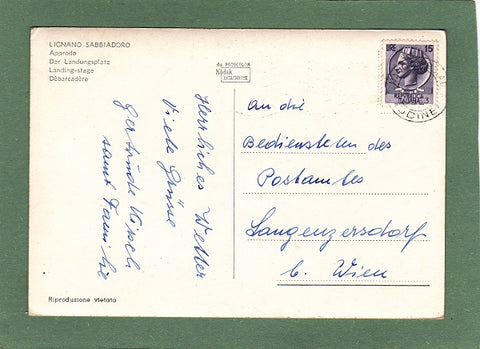 LIGNANO SABBIADORO
Approdo
Der Landungsplatz
Landing-stage
Débarcadère
da FOTOCOLOR
Kodak
EKTACHROME
LIRE 15
UDINE
Herrliches Wetter
Viele Grüsse
Gertrude
samt Familie
An die
Bediensteten des
Postamtes
Langenzersdorf
b. Wien
Riproduzione vietata